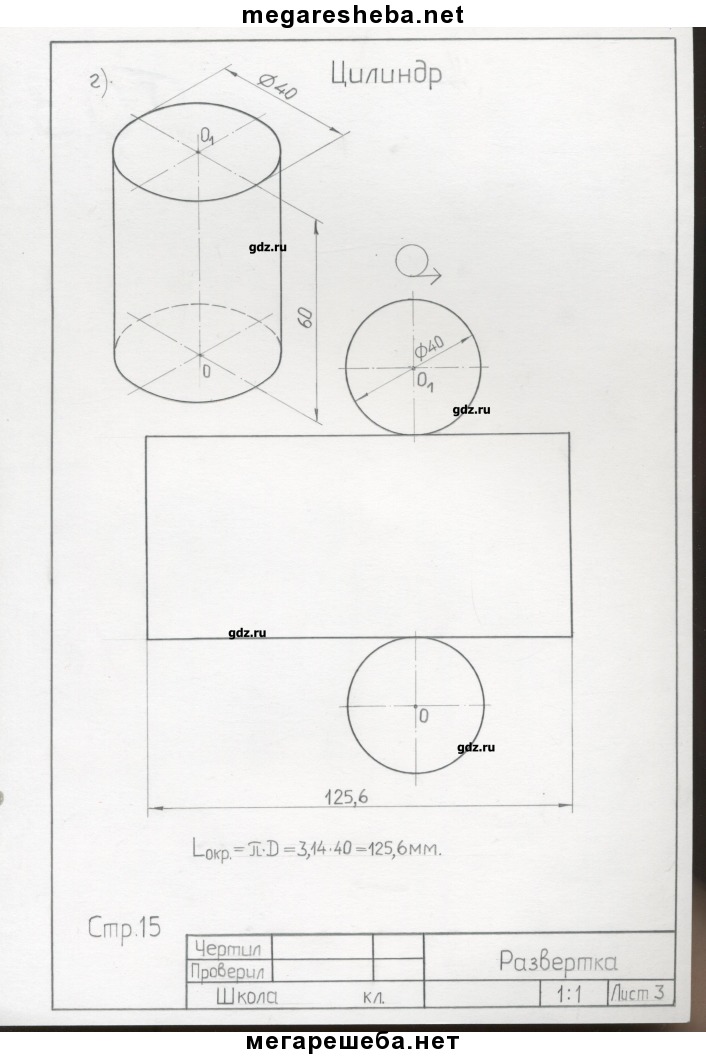 megaresheba.net
Цилиндр
г).
⌀40
O₁
gdz.ru
60
⌀40
O₁
O
gdz.ru
gdz.ru
O
gdz.ru
125,6
Lокр.=π·D=3,14·40=125,6мм.
Стр.15
Чертил
Проверил
Развертка
Школа кл.
1:1
Лист 3
мегарешеба.нет